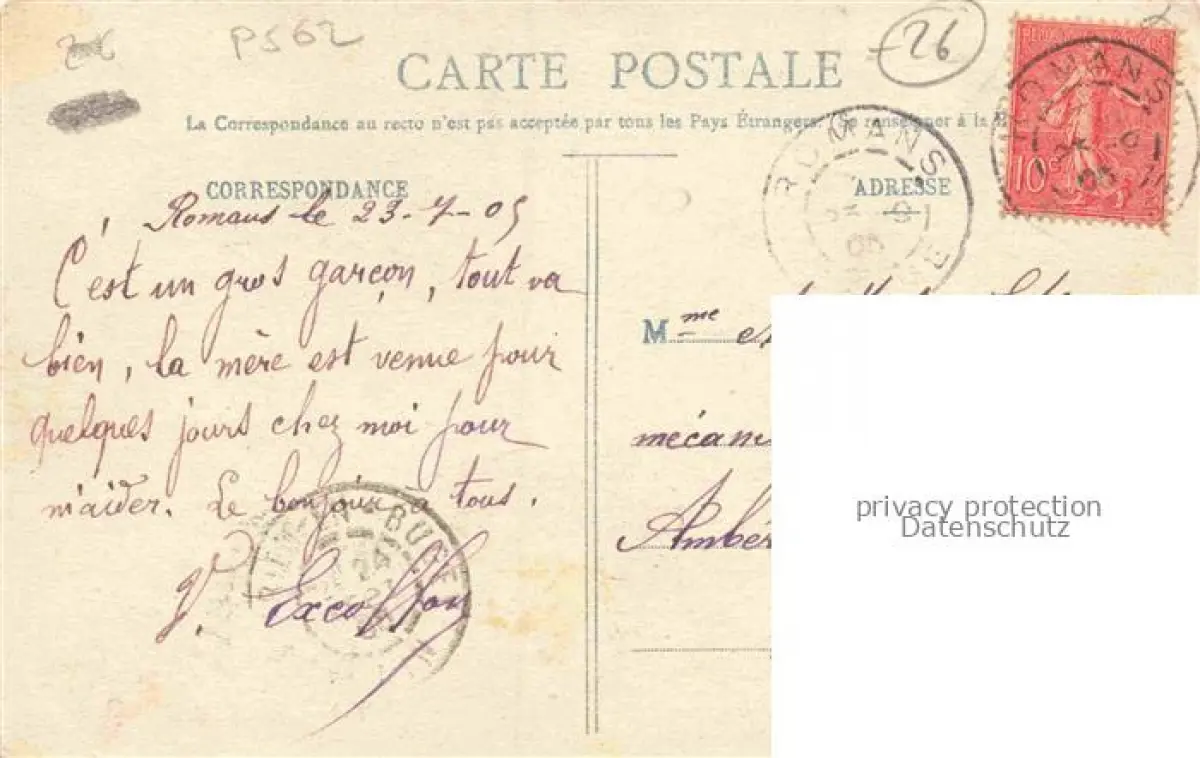 P562
26
CARTE POSTALE
La Correspondance au recto n'est pas acceptée par tous les Pays Étrangers. (Se renseigner à la
CORRESPONDANCE
ADRESSE
ROMANS
ROMANS
10c
Romans le 23-7-05
C'est un gros garçon, tout va
bien, la mère est venue pour
quelques jours chez moi pour
m'aider. Le bonjour à tous.
V. Excoffon
24
Mme
mécani
Ambér
privacy protection
Datenschutz